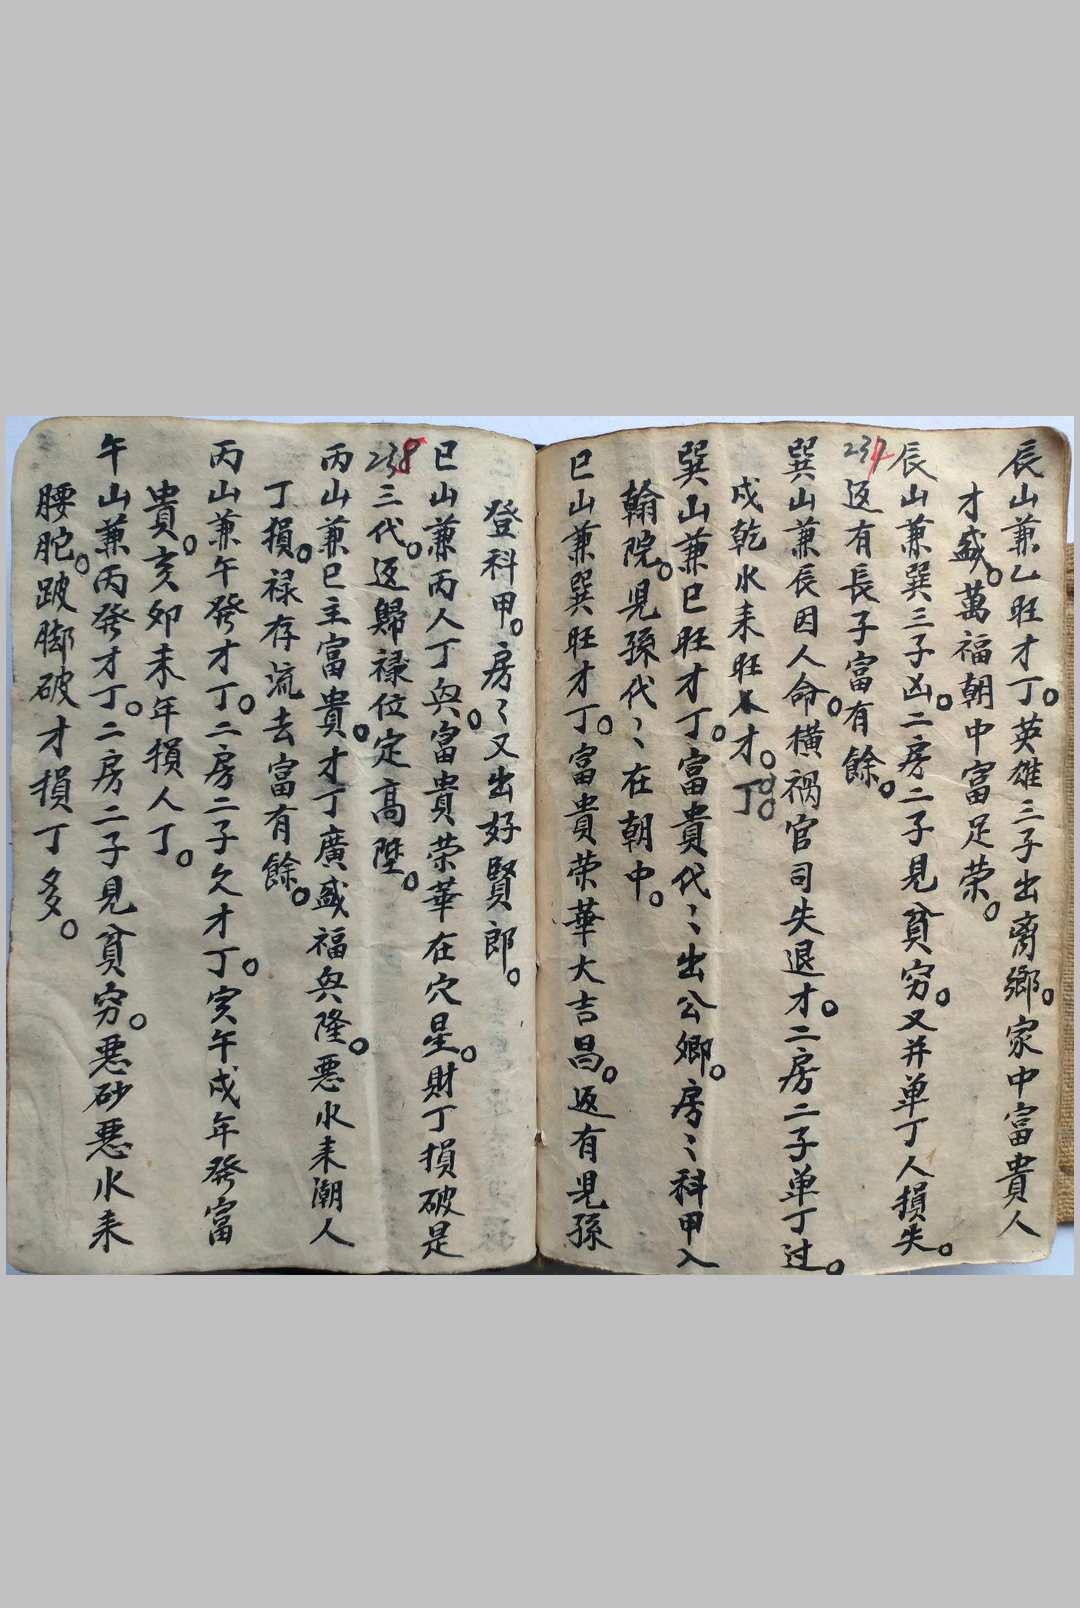 辰山兼乙旺才丁。英雄三子出离鄉。家中富貴人
才盛。萬福朝中富足荣。
辰山兼巽三子凶。二房二子見貧穷。又并单丁人損失。
237
返有長子富有餘。
巽山兼辰因人命。横祸官司失退才。二房二子单丁过。
戍乾水耒旺才。丁。
巽山兼巳旺才丁。富貴代〻出公卿。房〻科甲入
翰院。児孫代〻在朝中。
巳山兼巽旺才丁。富貴荣華大吉昌。返有児孫
登科甲。房〻又出好賢郎。
巳山兼丙人丁與。富貴荣華在穴星。財丁損破是
238
三代。返歸禄位定高陞。
丙山兼巳主富貴。才丁廣盛福與隆。悪水耒潮人
丁損。禄存流去富有餘。
丙山兼午發才丁。二房二子欠才丁。寅午戍年發富
貴。亥卯未年損人丁。
午山兼丙發才丁。二房二子見貧穷。悪砂悪水耒
腰脃。跛脚破才損丁多。